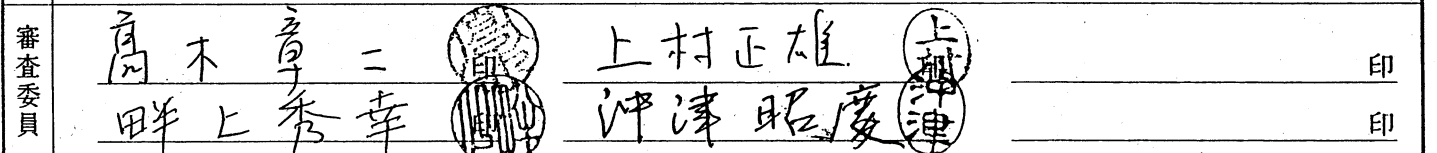 審査委員
髙木章二 印 上村正雄 上村 印
畔上秀幸 印 沖津昭慶 沖津 印